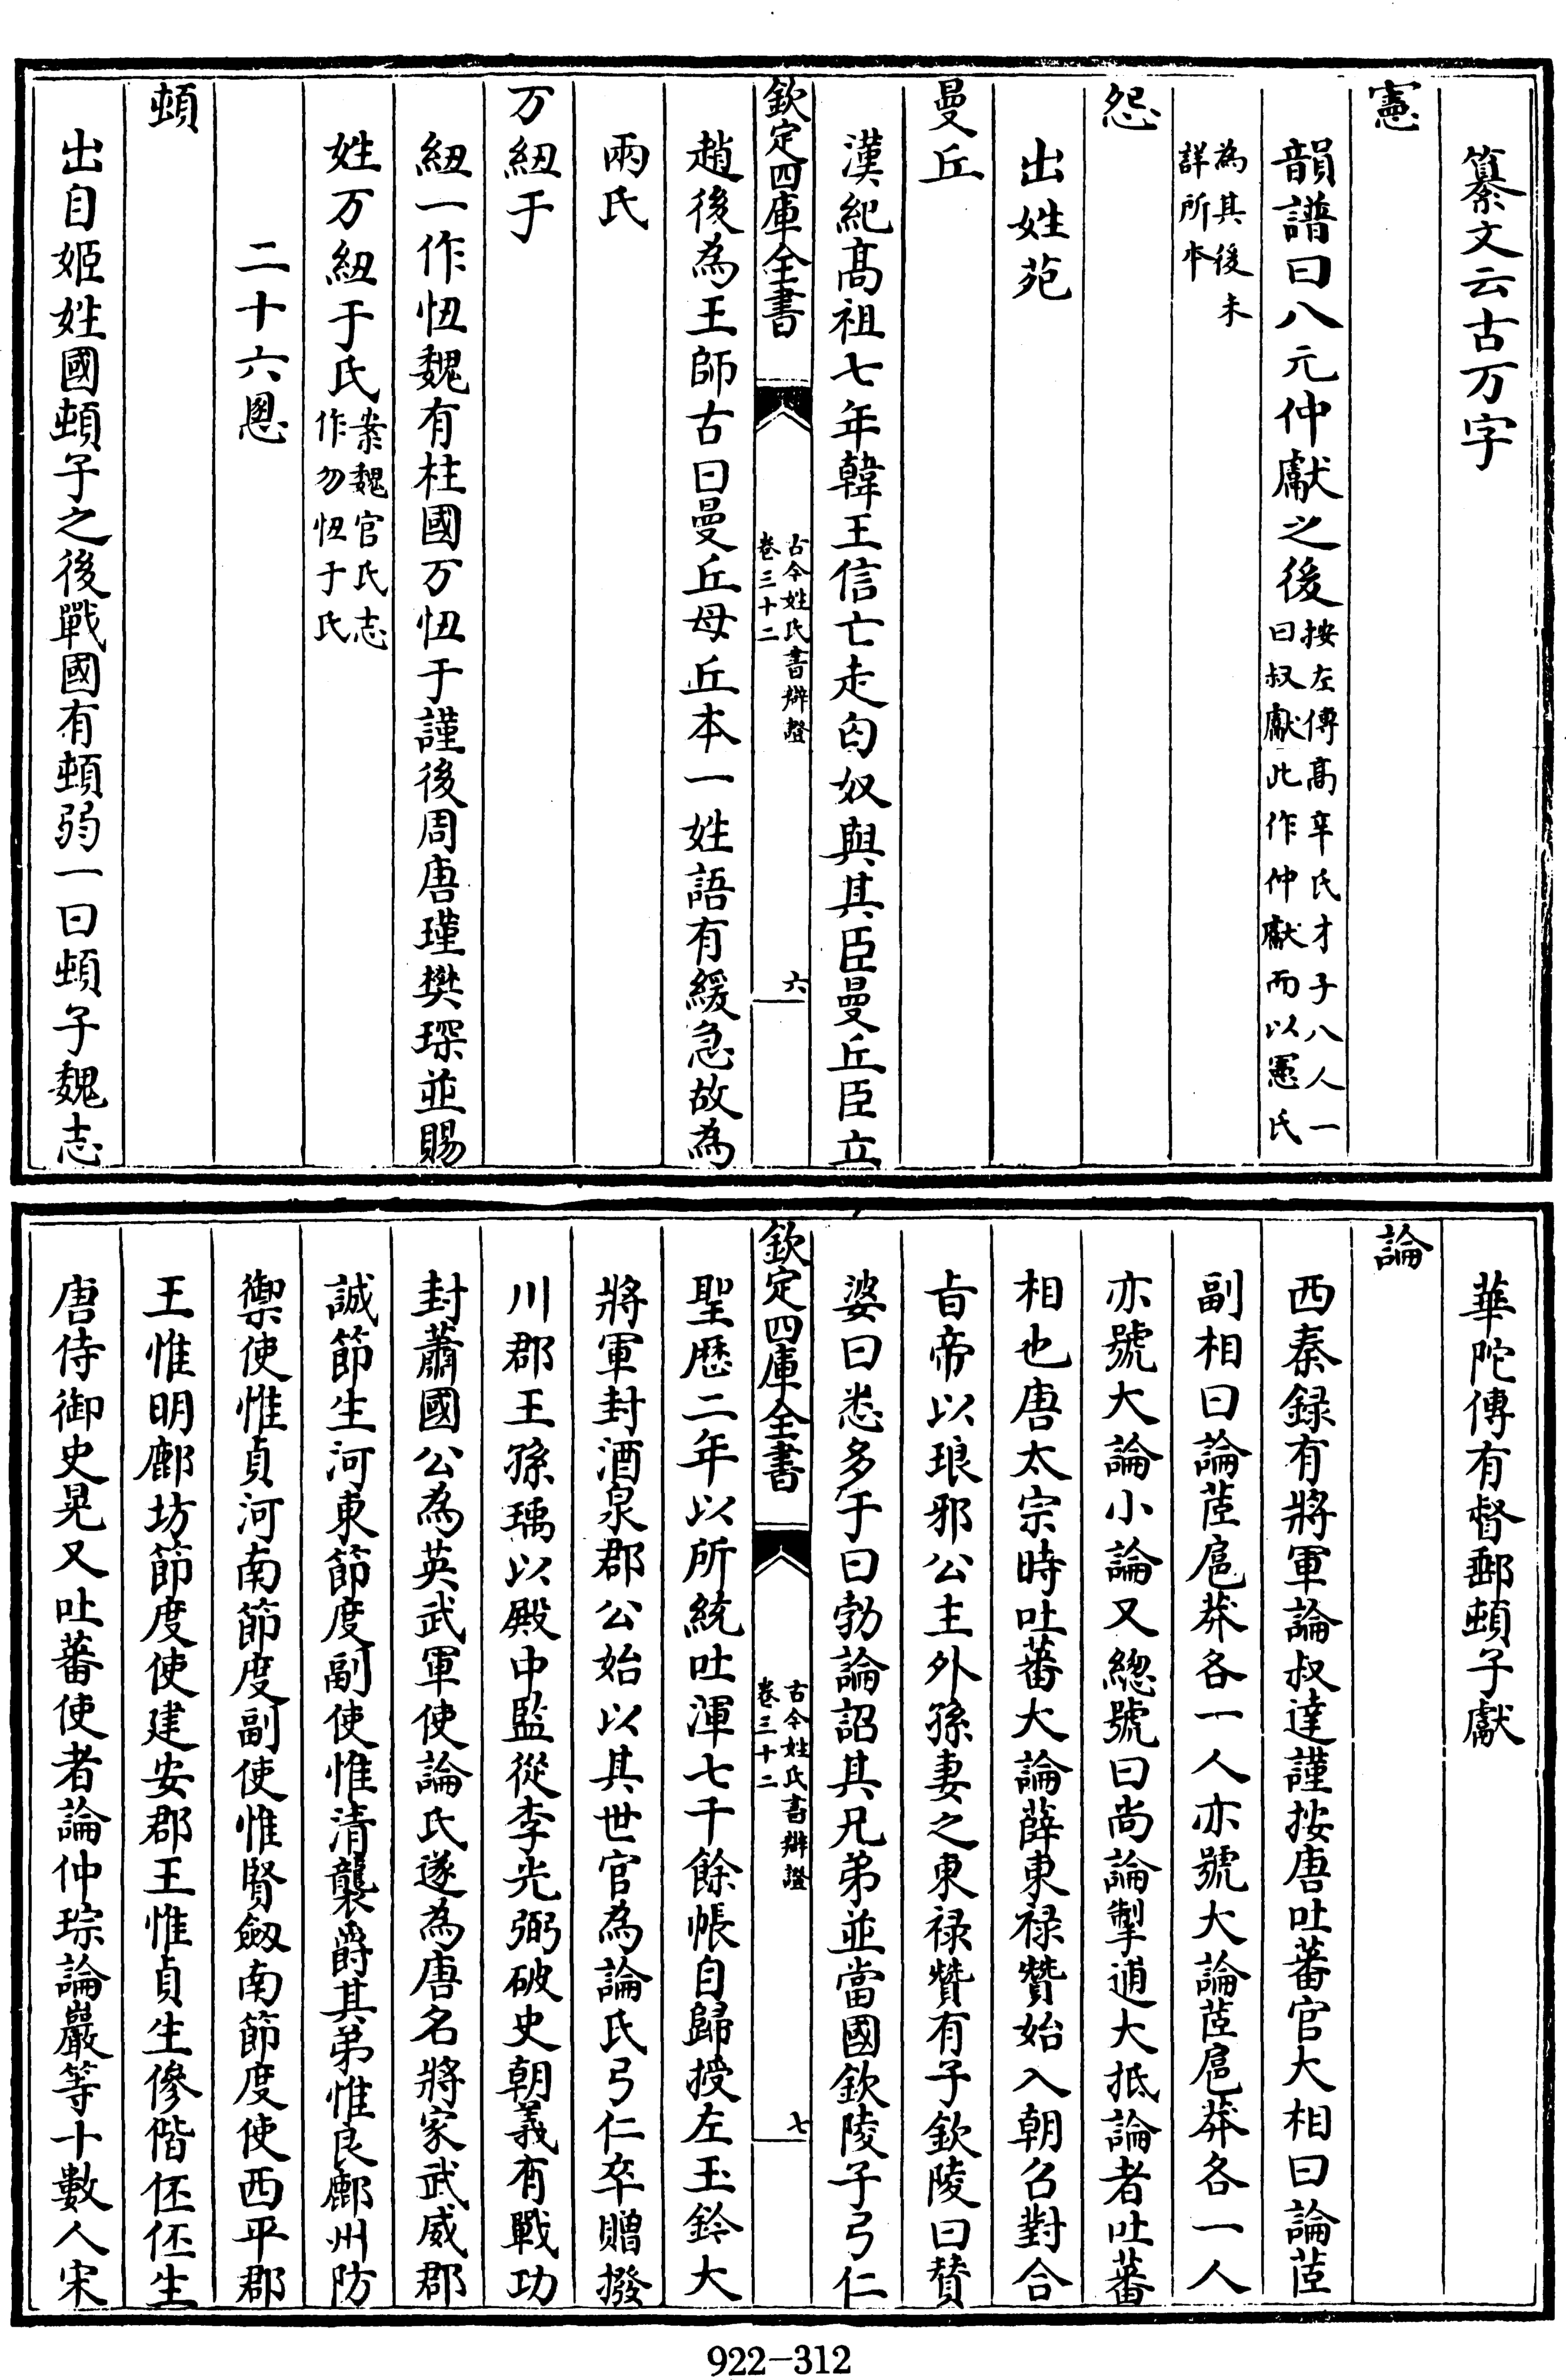 纂文云古万字
憲
韻譜曰八元仲獻之後按左傳高辛氏才子八人一曰叔獻此作仲獻而以憲氏
為其後未詳所本
怨
出姓苑
曼丘
漢紀高祖七年韓王信亡走匈奴與其臣曼丘臣立
欽定四庫全書
古今姓氏書辯證
卷三十二
六
趙後為王師古曰曼丘母丘本一姓語有緩急故為
兩氏
万紐于
紐一作忸魏有柱國万忸于謹後周唐瑾樊琛並賜
姓万紐于氏案魏官氏志作勿忸于氏
二十六慁
頓
出自姬姓國頓子之後戰國有頓弱一曰頓子魏志
華陀傳有督郵頓子獻
論
西秦録有將軍論叔達謹按唐吐蕃官大相曰論茝
副相曰論茝扈莽各一人亦號大論茝扈莽各一人
亦號大論小論又總號曰尚論掣逋大抵論者吐蕃
相也唐太宗時吐蕃大論薛東禄贊始入朝召對合
㫖帝以琅邪公主外孫妻之東禄贊有子欽陵曰贊
婆曰悉多于曰勃論詔其兄弟並當國欽陵子弓仁
欽定四庫全書
古今姓氏書辯證
卷三十二
七
聖歴二年以所統吐渾七千餘帳自歸授左玉鈐大
將軍封酒泉郡公始以其世官為論氏弓仁卒贈撥
川郡王孫瑀以殿中監從李光弼破史朝義有戰功
封蕭國公為英武軍使論氏遂為唐名將家武威郡
誠節生河東節度副使惟清襲爵其弟惟良鄜州防
禦使惟貞河南節度副使惟賢劔南節度使西平郡
王惟明鄜坊節度使建安郡王惟貞生傪偕伾伾生
唐侍御史晃又吐蕃使者論仲琮論巖等十數人宋
922-312